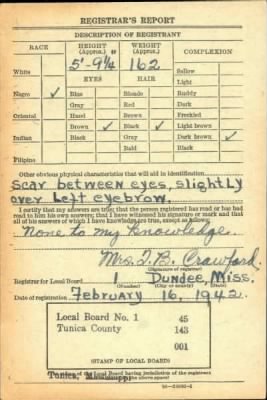 REGISTRAR'S REPORT
DESCRIPTION OF REGISTRANT
RACE
HEIGHT (Approx.)
WEIGHT (Approx.)
COMPLEXION
5'-9¼"
162
White
EYES
HAIR
Sallow
Light
Negro ✓
Blue
Blonde
Ruddy
Gray
Red
Dark
Oriental
Hazel
Brown
Freckled
Brown ✓
Black ✓
Light brown
Indian
Black
Gray
Dark brown ✓
Bald
Black
Filipino
Other obvious physical characteristics that will aid in identification
Scar between eyes, slightly
over left eyebrow.
I certify that my answers are true; that the person registered has read or has had
read to him his own answers; that I have witnessed his signature or mark and that
all of his answers of which I have knowledge are true, except as follows:
None to my knowledge.
Mrs. J. B. Crawford
(Signature of registrar)
Registrar for Local Board 1 Dundee, Miss.
(Number) (City or county) (State)
Date of registration February 16, 1942
Local Board No. 1 45
Tunica County 143
001
(STAMP OF LOCAL BOARD)
Tunica, Mississippi
of the Local Board having jurisdiction of the registrant